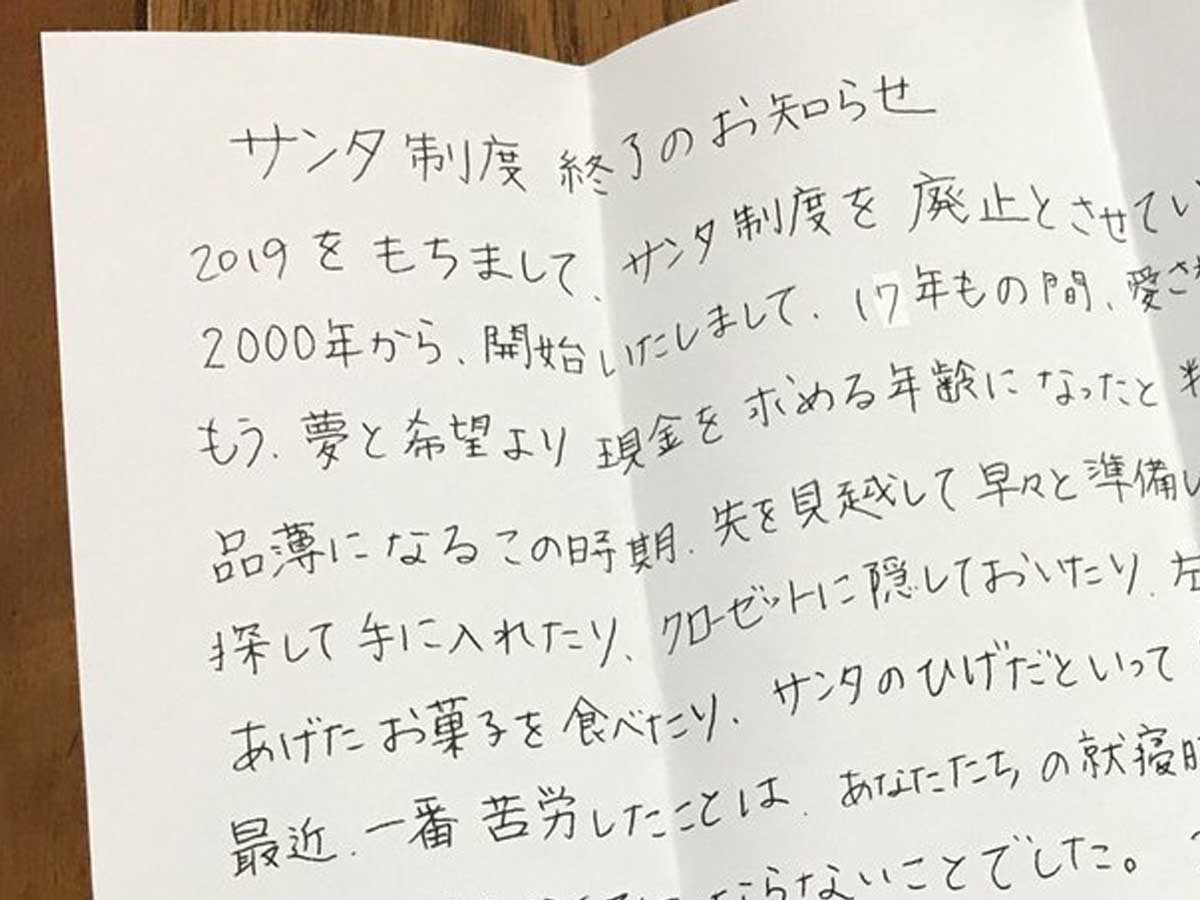 サンタ制度 終了のお知らせ
2019をもちまして、サンタ制度を廃止とさせてい
2000年から、開始いたしまして、17年もの間、愛さ
もう、夢と希望より現金を求める年齢になったと
品薄になるこの時期、先を見越して早々と準備し
探して手に入れたり、クローゼットに隠しておいたり、左
あげたお菓子を食べたり、サンタのひげだといって
最近、一番苦労したことは、あなたたちの就寝時
ならないことでした。